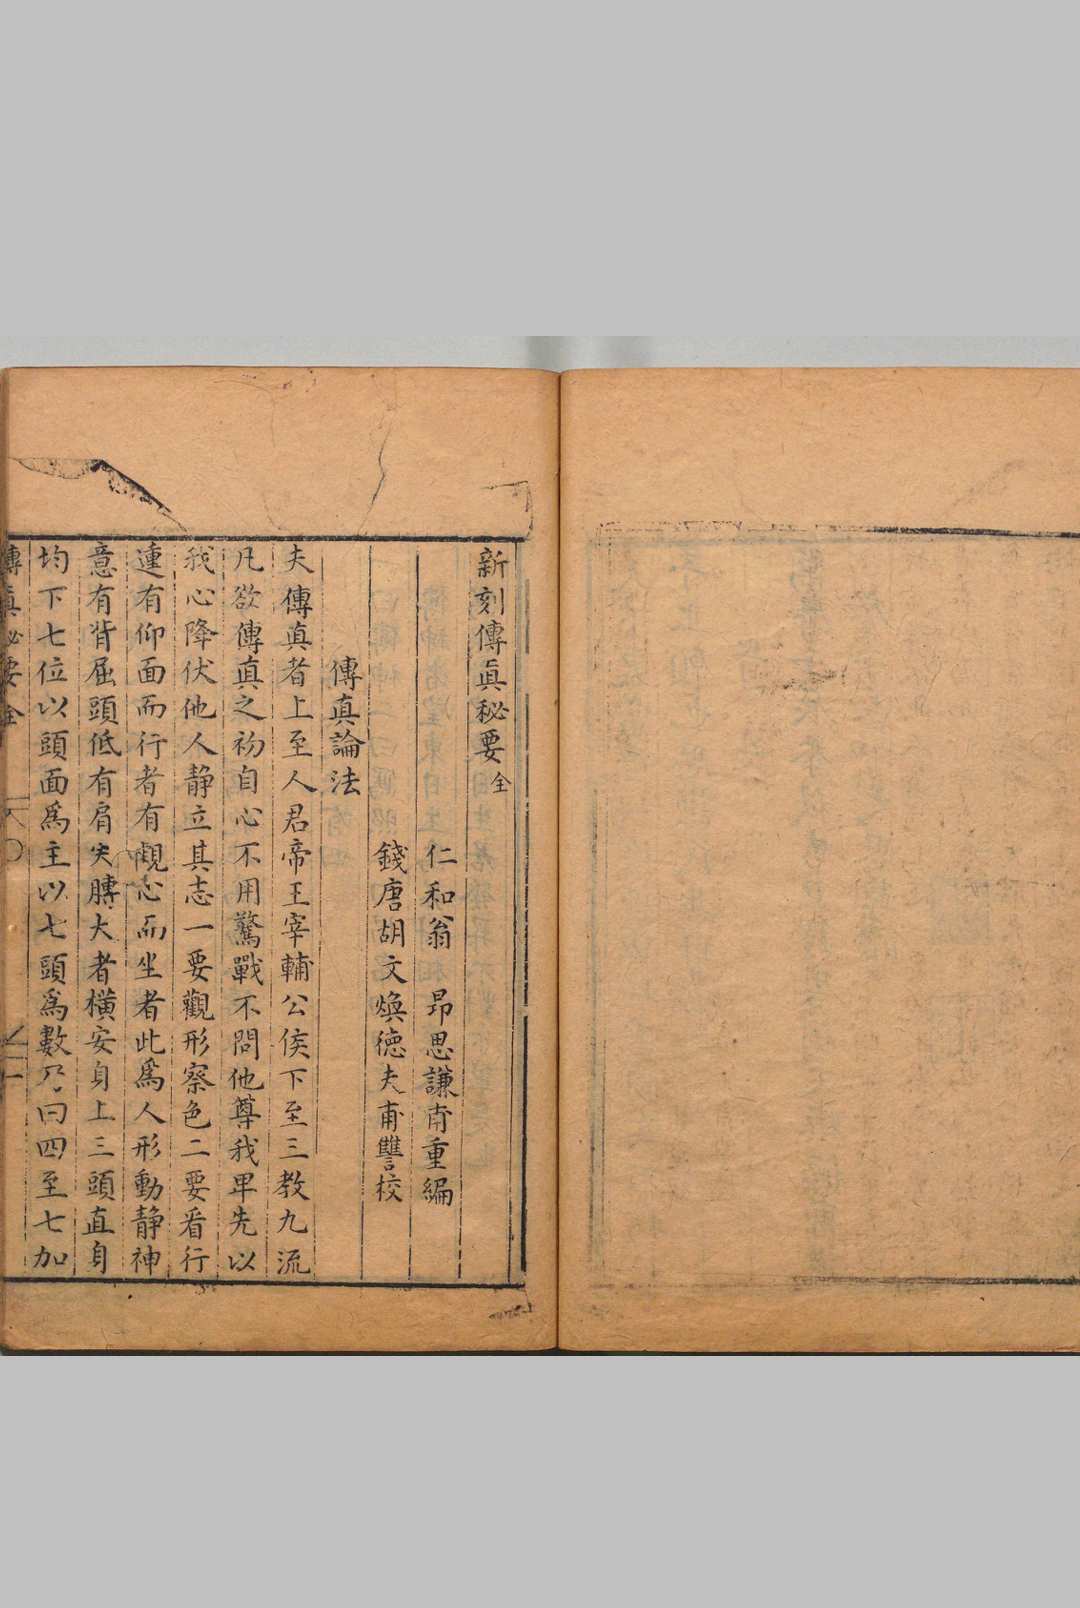 新刻傳眞秘要全
仁和翁　昂思謙甫重編
錢唐胡文煥德夫甫讐校
傳真論法
夫傳真者上至人君帝王宰輔公侯下至三教九流
凡欲傳真之初自心不用驚戰不問他尊我畢先以
我心降伏他人静立其志一要觀形察色二要看行
連有仰面而行者有觀心而坐者此爲人形動靜神
意有背屈頭低有肩尖膊大者橫安身上三頭直身
均下七位以頭面爲主以七頭爲數乃曰四至七加
傳眞必要全